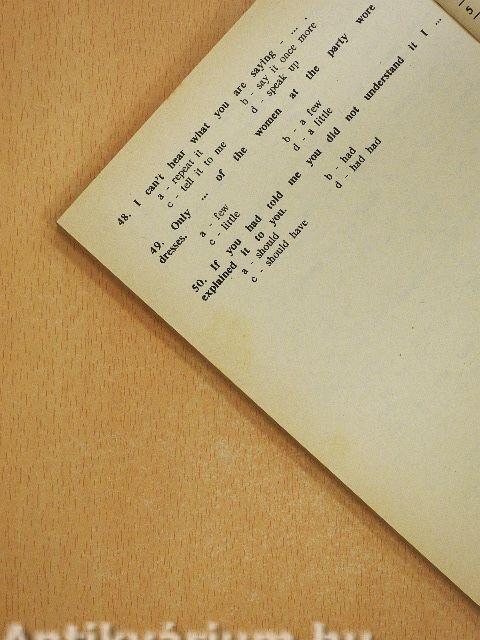 48. I can't hear what you are saying - ... .
a - repeat it b - say it once more
c - tell it to me d - speak up
49. Only ... of the women at the party wore
dresses.
a - few b - a few
c - little d - a little
50. If you had told me you did not understand it I ...
explained it to you.
a - should b - had
c - should have d - had had
5
Antikvárium.hu